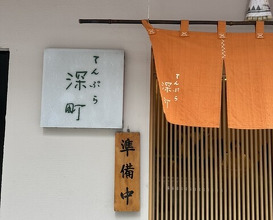 てんぷら
深町
準備中
てんぷら
深町